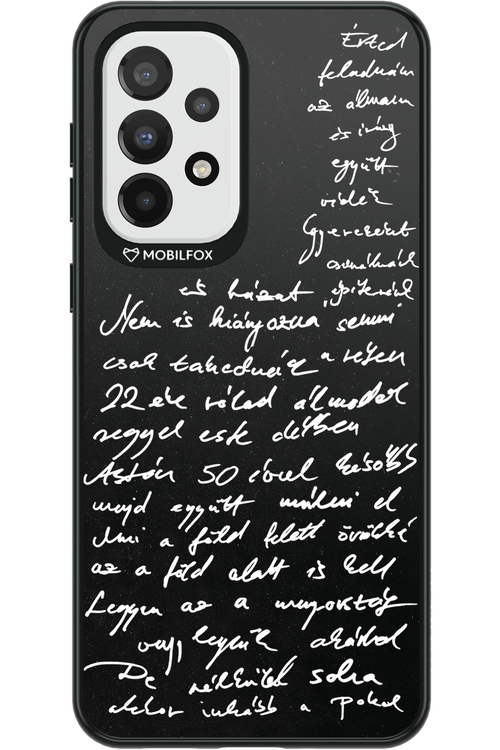 Érted
feladnám
az álmaim
és irány
együtt
vidék
Gyerekeket
csinálnánk
és házat építenék
MOBILFOX
Nem is hiányozna semmi
csak takednék a részem
22 éve rólad álmodok
reggel este délben
Aztán 50 évvel később
majd együtt múlni el
Ami a föld felett örökké
az a föld alatt is kell
Legyen az a mennyország
vagy legyünk akárhol
De nélküled soha
akkor inkább a pokol